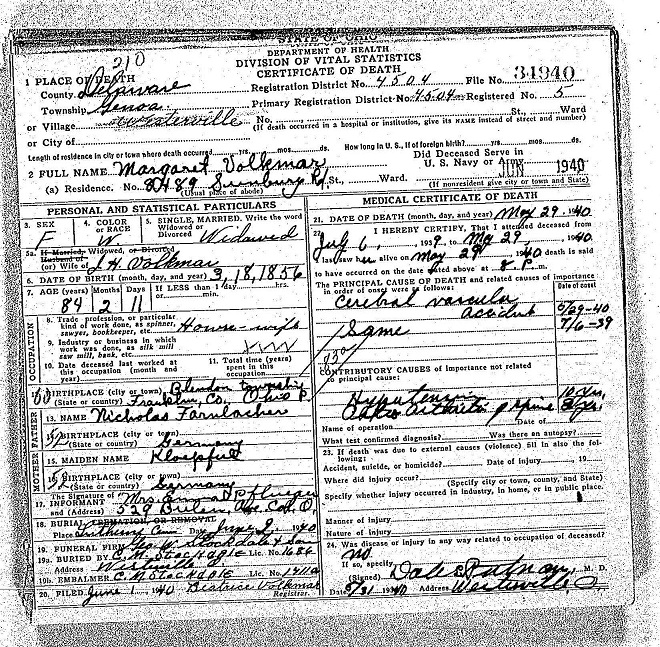 210
STATE OF OHIO
DEPARTMENT OF HEALTH
DIVISION OF VITAL STATISTICS
CERTIFICATE OF DEATH
1 PLACE OF DEATH
County Delaware Registration District No. 4504 File No. 34940
Township Genoa Primary Registration District No. 4504 Registered No. 5
or Village Westerville No. St., Ward
(If death occurred in a hospital or institution, give its NAME instead of street and number)
or City of
Length of residence in city or town where death occurred yrs. mos. ds. How long in U.S., if of foreign birth? yrs. mos. ds.
2 FULL NAME Margaret Volkmar Did Deceased Serve in
U. S. Navy or JUN 1940
(a) Residence. No. 8489 Sunbury Rd St., Ward.
(Usual place of abode) (If nonresident give city or town and State)
PERSONAL AND STATISTICAL PARTICULARS
3. SEX F
4. COLOR or RACE W
5. SINGLE, MARRIED. Write the word Widowed or Divorced Widowed
5a. If Married, Widowed, or Divorced
Husband of
(or) Wife of J. H. Volkmar
6. DATE OF BIRTH (month, day, and year) 3, 18, 1856
7. AGE (years) 84 Months 2 Days 11 If LESS than 1 day hrs. or min.
OCCUPATION
8. Trade, profession, or particular kind of work done, as spinner, sawyer, bookkeeper, etc. House-wife
9. Industry or business in which work was done, as silk mill saw mill, bank, etc.
10. Date deceased last worked at this occupation (month and year)
11. Total time (years) spent in this occupation
12. BIRTHPLACE (city or town) Blendon township
(State or country) Franklin, Co. Ohio
FATHER
13. NAME Nicholas Farnlacher
14. BIRTHPLACE (city or town)
(State or country) Germany
MOTHER
15. MAIDEN NAME Kloepful
16. BIRTHPLACE (city or town)
(State or country) Germany
The Signature of
17. INFORMANT Mrs. Emma P.
and (Address) 529 Ave. Col. O.
18. BURIAL CREMATION, OR REMOVAL
Place Cem Date June 2, 1940
19. FUNERAL FIRM Stockdale & Son
19a. BURIED BY C. M. STOCKDALE Lic. No. 1686
Address Westerville
19b. EMBALMER C M STOCKDALE Lic. No. 1411a
20. FILED June 1 1940 Beatrice Volkmar
Registrar.
MEDICAL CERTIFICATE OF DEATH
21. DATE OF DEATH (month, day, and year) May 29, 1940
22. I HEREBY CERTIFY, That I attended deceased from
July 6, 1939, to May 29, 1940
I last saw her alive on May 29 1940 death is said
to have occurred on the date stated above at 8. P. m.
THE PRINCIPAL CAUSE OF DEATH and related causes of importance
in order of onset were as follows: Date of onset
Cerebral vascular
accident 5/29-40
Same 7/6-39
CONTRIBUTORY CAUSES of importance not related
to principal cause:
Hypertension 10 yrs.
arthritis spine
Name of operation Date of
What test confirmed diagnosis? Was there an autopsy?
23. If death was due to external causes (violence) fill in also the following:
Accident, suicide, or homicide? Date of injury 19
Where did injury occur?
(Specify city or town, county, and State)
Specify whether injury occurred in industry, in home, or in public place.
Manner of injury
Nature of injury
24. Was disease or injury in any way related to occupation of deceased?
no
If so, specify
(Signed) Dale E. Putnam, M. D.
Date 5/31 1940 Address Westerville, O.